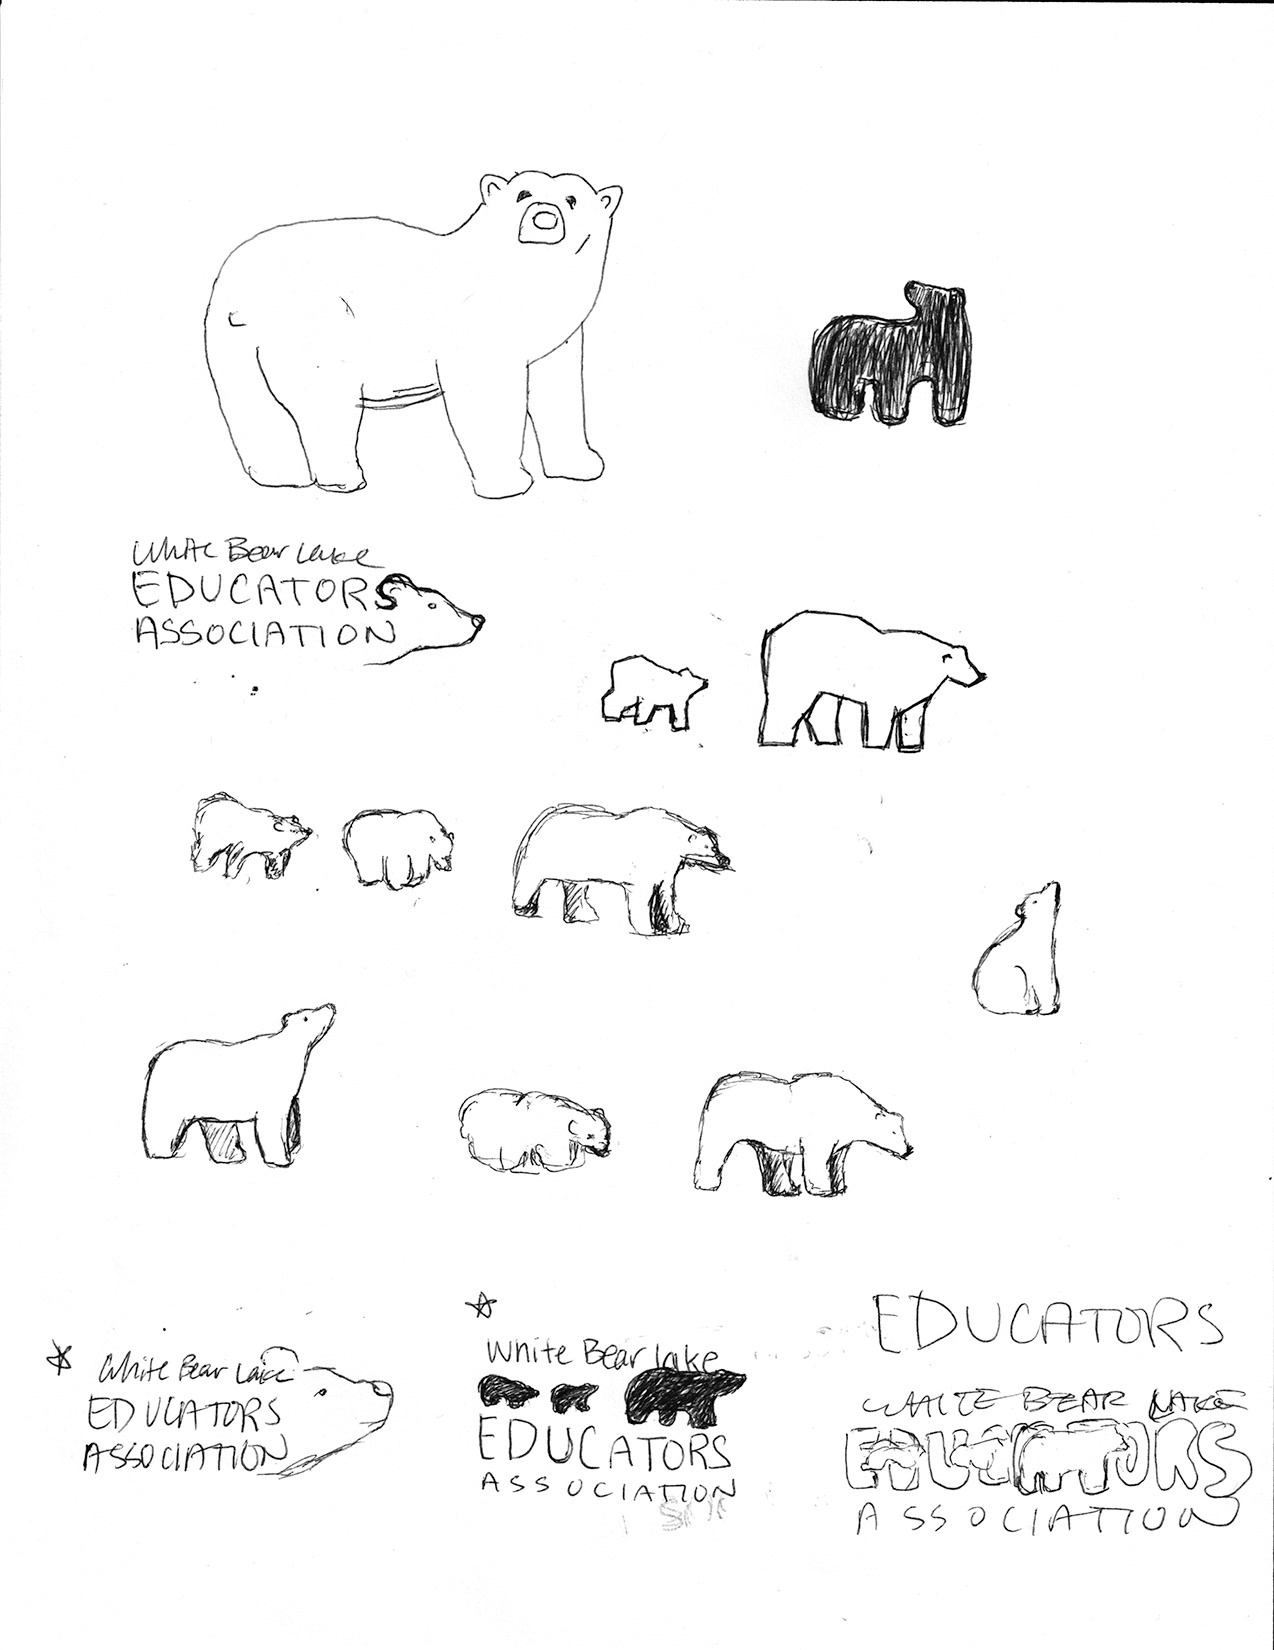 White Bear Lake
EDUCATORS
ASSOCIATION
White Bear Lake
EDUCATORS
ASSOCIATION
White Bear lake
EDUCATORS
ASSOCIATION
EDUCATORS
WHITE BEAR LAKE
EDUCATORS
ASSOCIATION